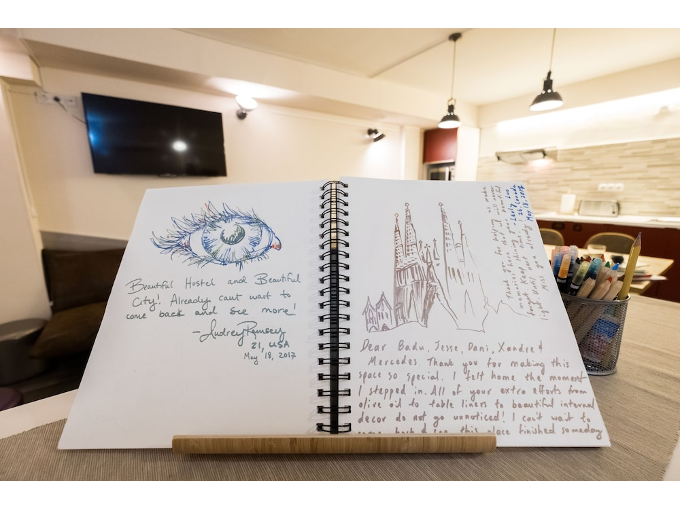 Beautiful Hostel and Beautiful
City! Already cant want to
come back and see more!
- Audrey Ramsey
21, USA
May 18, 2017
Dear Badu, Jesse, Dani, Xandre &
Mercedes. Thank you for making this
space so special. I felt home the moment
I stepped in. All of your extra efforts from
olive oil to table liners to beautiful internal
decor do not go unnoticed! I can't wait to
this place finished someday
May 18, 2017